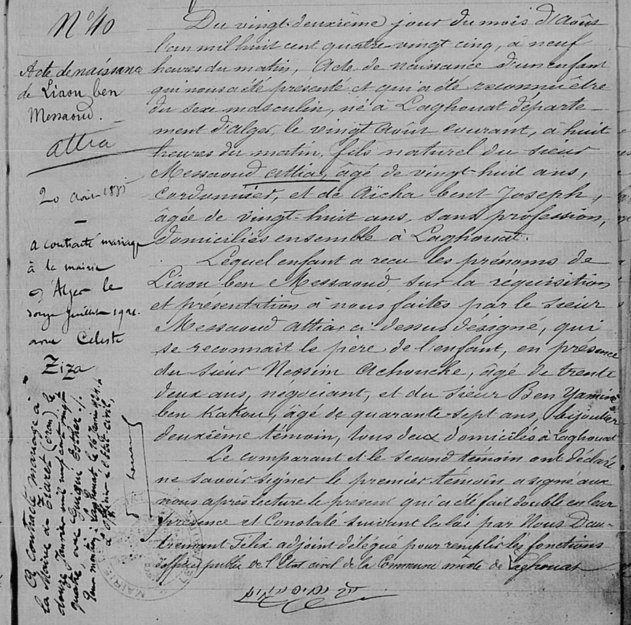 N° 40
Acte de naissance
de Liaou ben
Messaoud.
Attia
20 Août 1885
a contracté mariage
à la mairie
d'Alger le
douze Juillet 1921
avec Céleste
Ziza
a contracté mariage à
la Mairie de Tiaret (Oran) le
douze Janvier mil neuf cent
quatre, avec
Pour mention, Laghouat, le
Du vingt-deuxième jour du mois d'Août
l'an mil huit cent quatre vingt cinq, à neuf
heures du matin, Acte de naissance d'un enfant
qui nous a été présenté et qui a été reconnu être
du sexe masculin, né à Laghouat départe-
ment d'alger, le vingt Août courant, à huit
heures du matin, fils naturel du sieur
Messaoud Attia, agé de vingt-huit ans,
Cordonnier, et de Aïcha bent Joseph,
agée de vingt-huit ans, sans profession,
domiciliés ensemble à Laghouat.
Lequel enfant a reçu les prénoms de
Liaou ben Messaoud sur la réquisition
et présentation à nous faites par le sieur
Messaoud Attia, ci dessus désigné, qui
se reconnait le père de l'enfant, en présence
du sieur Nessim Achouche, agé de trente
deux ans, négociant, et du sieur Ben Yamine
ben Kakou, agé de quarante sept ans, bijoutier
deuxième témoin, tous deux domiciliés à Laghouat
Le comparant et le second témoin ont déclaré
ne savoir signer le premier témoin a signé avec
nous après lecture le présent qui a été fait double en leur
présence et Constaté suivant la loi par Nous Dau-
tremant Félix adjoint délégué pour remplir les fonctions
d'officier public de l'Etat civil de la Commune mixte de Laghouat